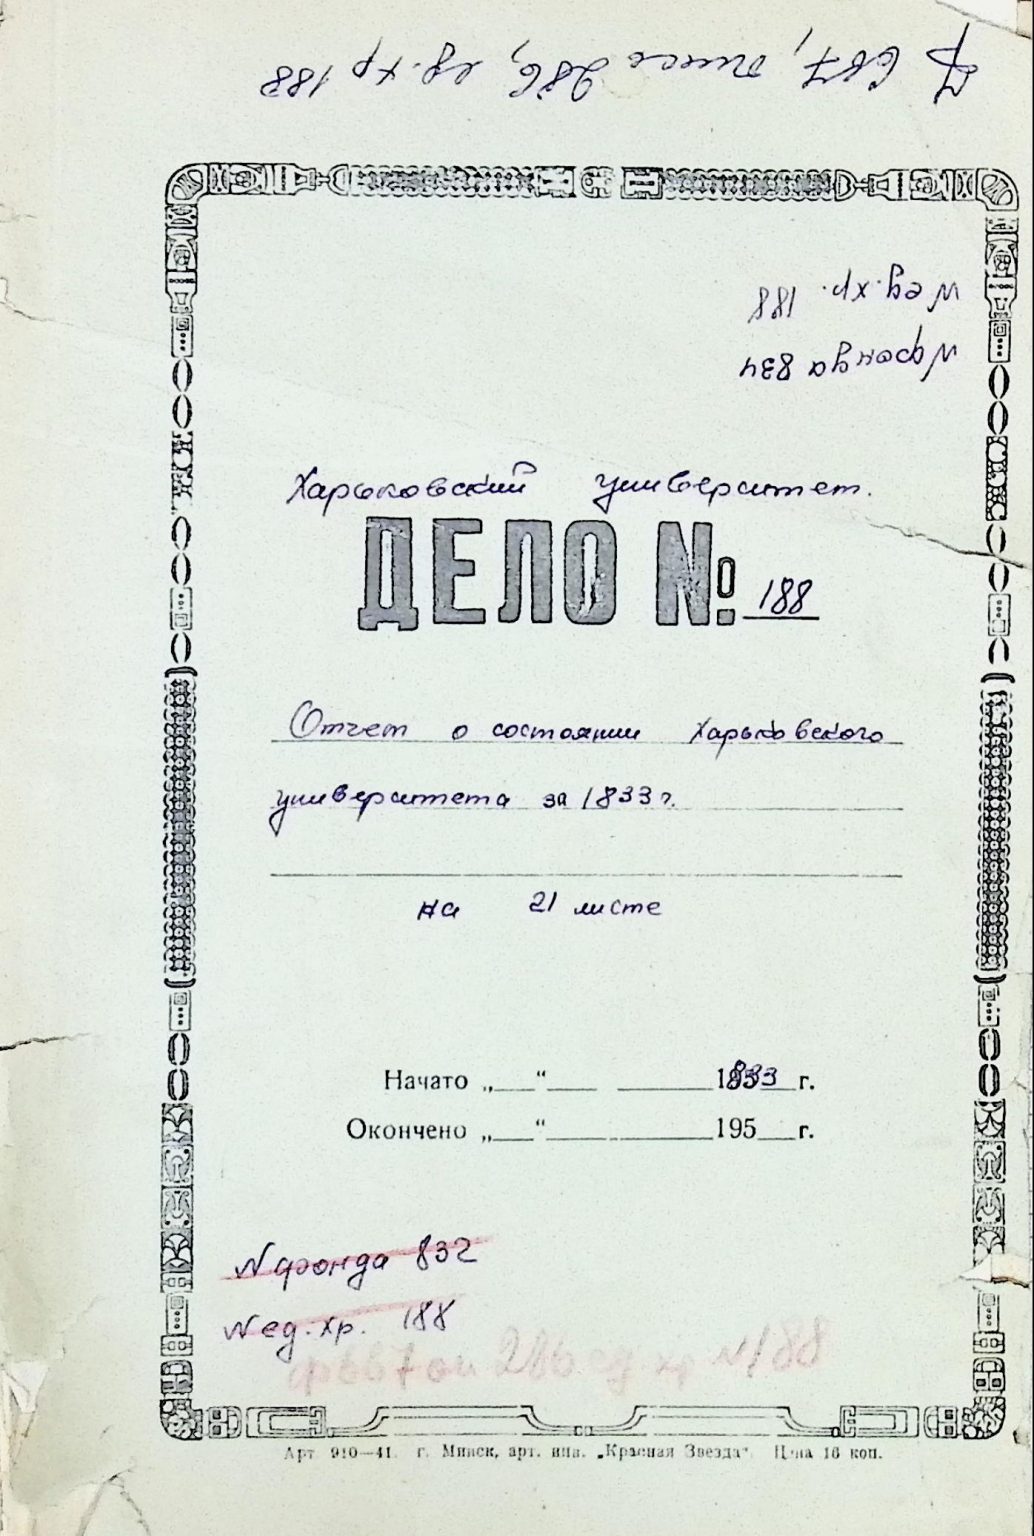 Ф 667, опись 286, ед. хр 188
N ед. хр. 188
N фонда 834
Харьковский университет.
ДЕЛО №. 188
Отчет о состоянии Харьковского
университета за 1833 г.
на 21 листе
Начато „___“____ ________1833 г.
Окончено „___“____________195__г.
N фонда 832
N ед. хр. 188
ф 667 оп 286 ед хр N 188
Арт 910—41. г. Минск, арт. инв. „Красная Звезда“. Цена 16 коп.